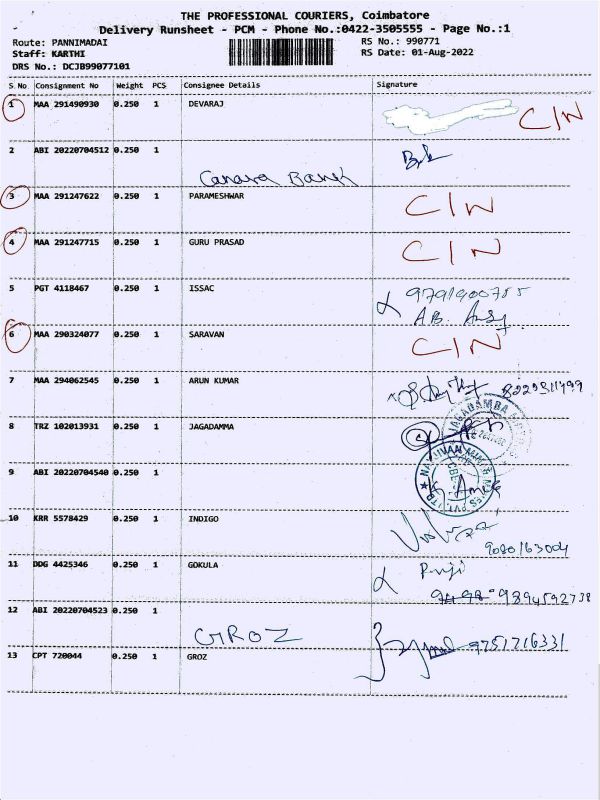 THE PROFESSIONAL COURIERS, Coimbatore
Delivery Runsheet - PCM - Phone No.:0422-3505555 - Page No.:1
Route: PANNIMADAI
RS No.: 990771
Staff: KARTHI
RS Date: 01-Aug-2022
DRS No.: DCJB99077101
S.No Consignment No Weight PCS Consignee Details Signature
1 MAA 291490930 0.250 1 DEVARAJ C/N
2 ABI 20220704512 0.250 1
Canara Bank
3 MAA 291247622 0.250 1 PARAMESHWAR C/N
4 MAA 291247715 0.250 1 GURU PRASAD C/N
5 PGT 4118467 0.250 1 ISSAC
6 MAA 290324077 0.250 1 SARAVAN C/N
7 MAA 294062545 0.250 1 ARUN KUMAR
8 TRZ 102013931 0.250 1 JAGADAMMA
JAGADAMBA
9 ABI 20220704540 0.250 1
10 KRR 5578429 0.250 1 INDIGO
9080163004
11 DDG 4425346 0.250 1 GOKULA
9894592738
12 ABI 20220704523 0.250 1
GROZ 9751716331
13 CPT 720044 0.250 1 GROZ